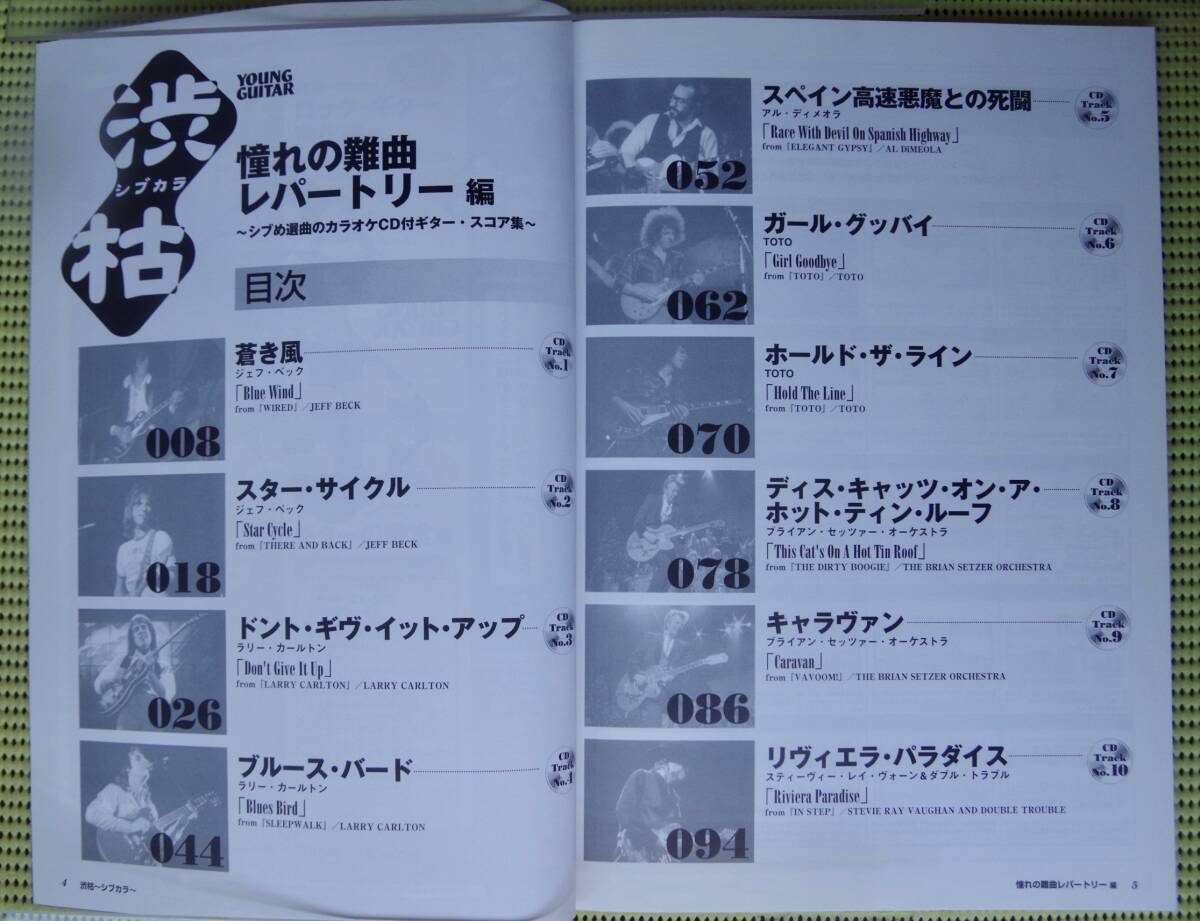 渋枯
シブカラ
YOUNG
GUITAR
憧れの難曲
レパートリー 編
～シブめ選曲のカラオケCD付ギター・スコア集～
目次
008
蒼き風
ジェフ・ベック
「Blue Wind」
from『WIRED』／JEFF BECK
CD
Track
No.1
018
スター・サイクル
ジェフ・ベック
「Star Cycle」
from『THERE AND BACK』／JEFF BECK
CD
Track
No.2
026
ドント・ギヴ・イット・アップ
ラリー・カールトン
「Don't Give It Up」
from『LARRY CARLTON』／LARRY CARLTON
CD
Track
No.3
044
ブルース・バード
ラリー・カールトン
「Blues Bird」
from『SLEEPWALK』／LARRY CARLTON
CD
Track
No.4
4 渋枯～シブカラ～
052
スペイン高速悪魔との死闘
アル・ディメオラ
「Race With Devil On Spanish Highway」
from『ELEGANT GYPSY』／AL DiMEOLA
CD
Track
No.5
062
ガール・グッバイ
TOTO
「Girl Goodbye」
from『TOTO』／TOTO
CD
Track
No.6
070
ホールド・ザ・ライン
TOTO
「Hold The Line」
from『TOTO』／TOTO
CD
Track
No.7
078
ディス・キャッツ・オン・ア・
ホット・ティン・ルーフ
ブライアン・セッツァー・オーケストラ
「This Cat's On A Hot Tin Roof」
from『THE DIRTY BOOGIE』／THE BRIAN SETZER ORCHESTRA
CD
Track
No.8
086
キャラヴァン
ブライアン・セッツァー・オーケストラ
「Caravan」
from『VAVOOM!』／THE BRIAN SETZER ORCHESTRA
CD
Track
No.9
094
リヴィエラ・パラダイス
スティーヴィー・レイ・ヴォーン&ダブル・トラブル
「Riviera Paradise」
from『IN STEP』／STEVIE RAY VAUGHAN AND DOUBLE TROUBLE
CD
Track
No.10
憧れの難曲レパートリー 編 5